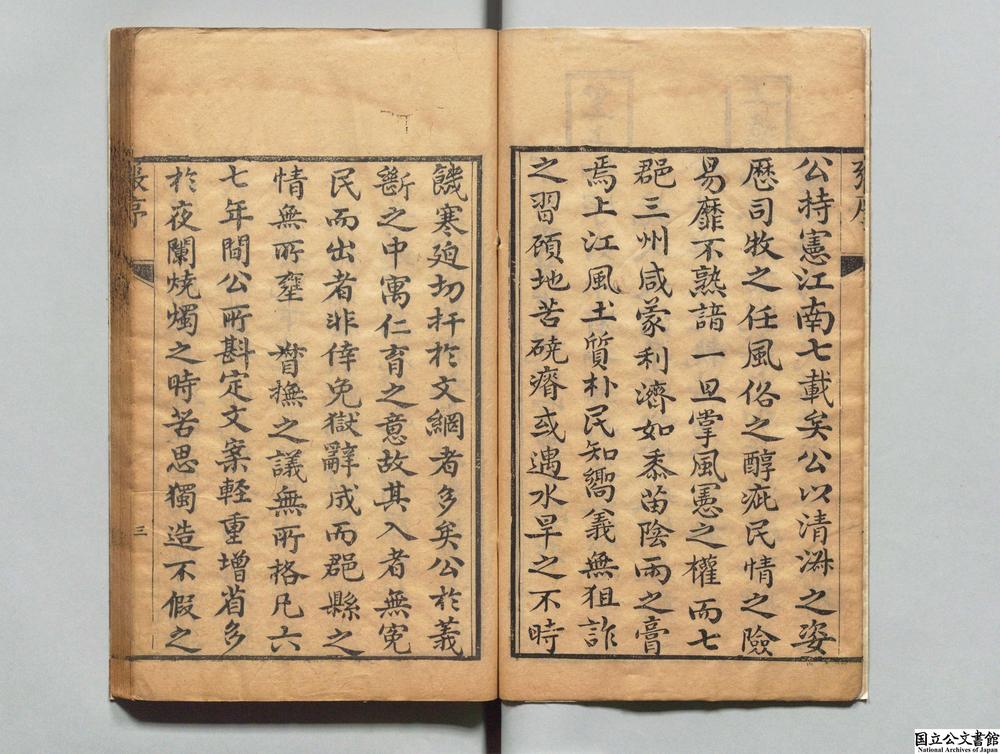 公持憲江南七載矣公以清淵之姿
歴司牧之任風俗之醇疵民情之險
易靡不熟諳一旦掌風憲之權而七
郡三州咸蒙利濟如黍苗陰雨之膏
焉上江風土質朴民知嚮義無狙詐
之習碩地苦磽瘠或遇水旱之不時
饑寒廹切扞於文網者多矣公於義
斷之中寓仁育之意故其入者無寃
民而出者非倖免獄辭成而郡縣之
情無所壅　督撫之議無所格凡六
七年間公所斟定文案輕重增省多
於夜闌燒燭之時苦思獨造不假之
張序
三
国立公文書館
National Archives of Japan